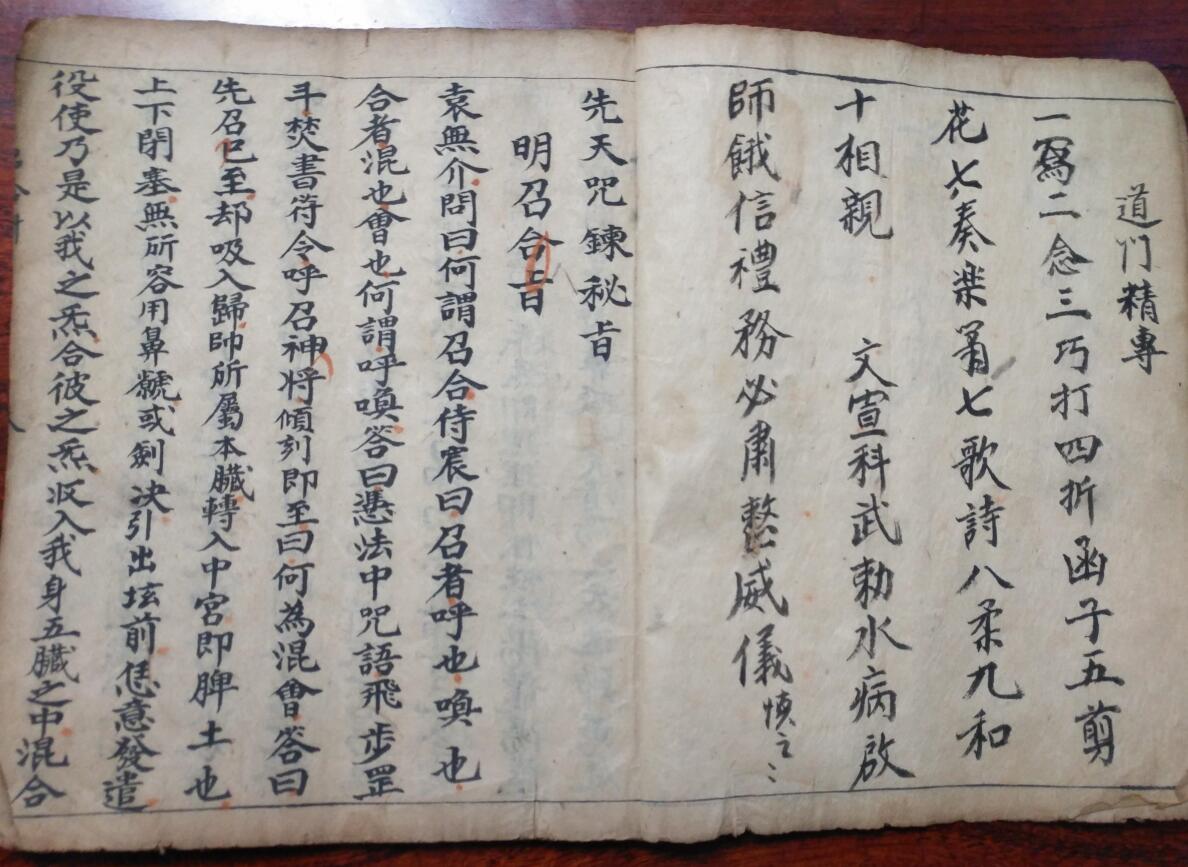 道门精專
一寫二念三巧打四折函子五剪
花七奏楽簫七歌詩八柔九和
十相親　文宣科武勅水病啟
師餓信禮務必肅整威儀慎之〻
先天咒鍊秘旨
明召合旨
袁無介問曰何謂召合侍宸曰召者呼也喚也
合者混也會也何謂呼喚答曰憑法中咒語飛步罡
斗焚書符令呼召神将傾刻即至曰何為混會答曰
先召已至却吸入歸師所屬本臟轉入中宮即脾土也
上下閉塞無所容用鼻觤或劍决引出坛前恁意發遣
役使乃是以我之炁合彼之炁収入我身五臟之中混合